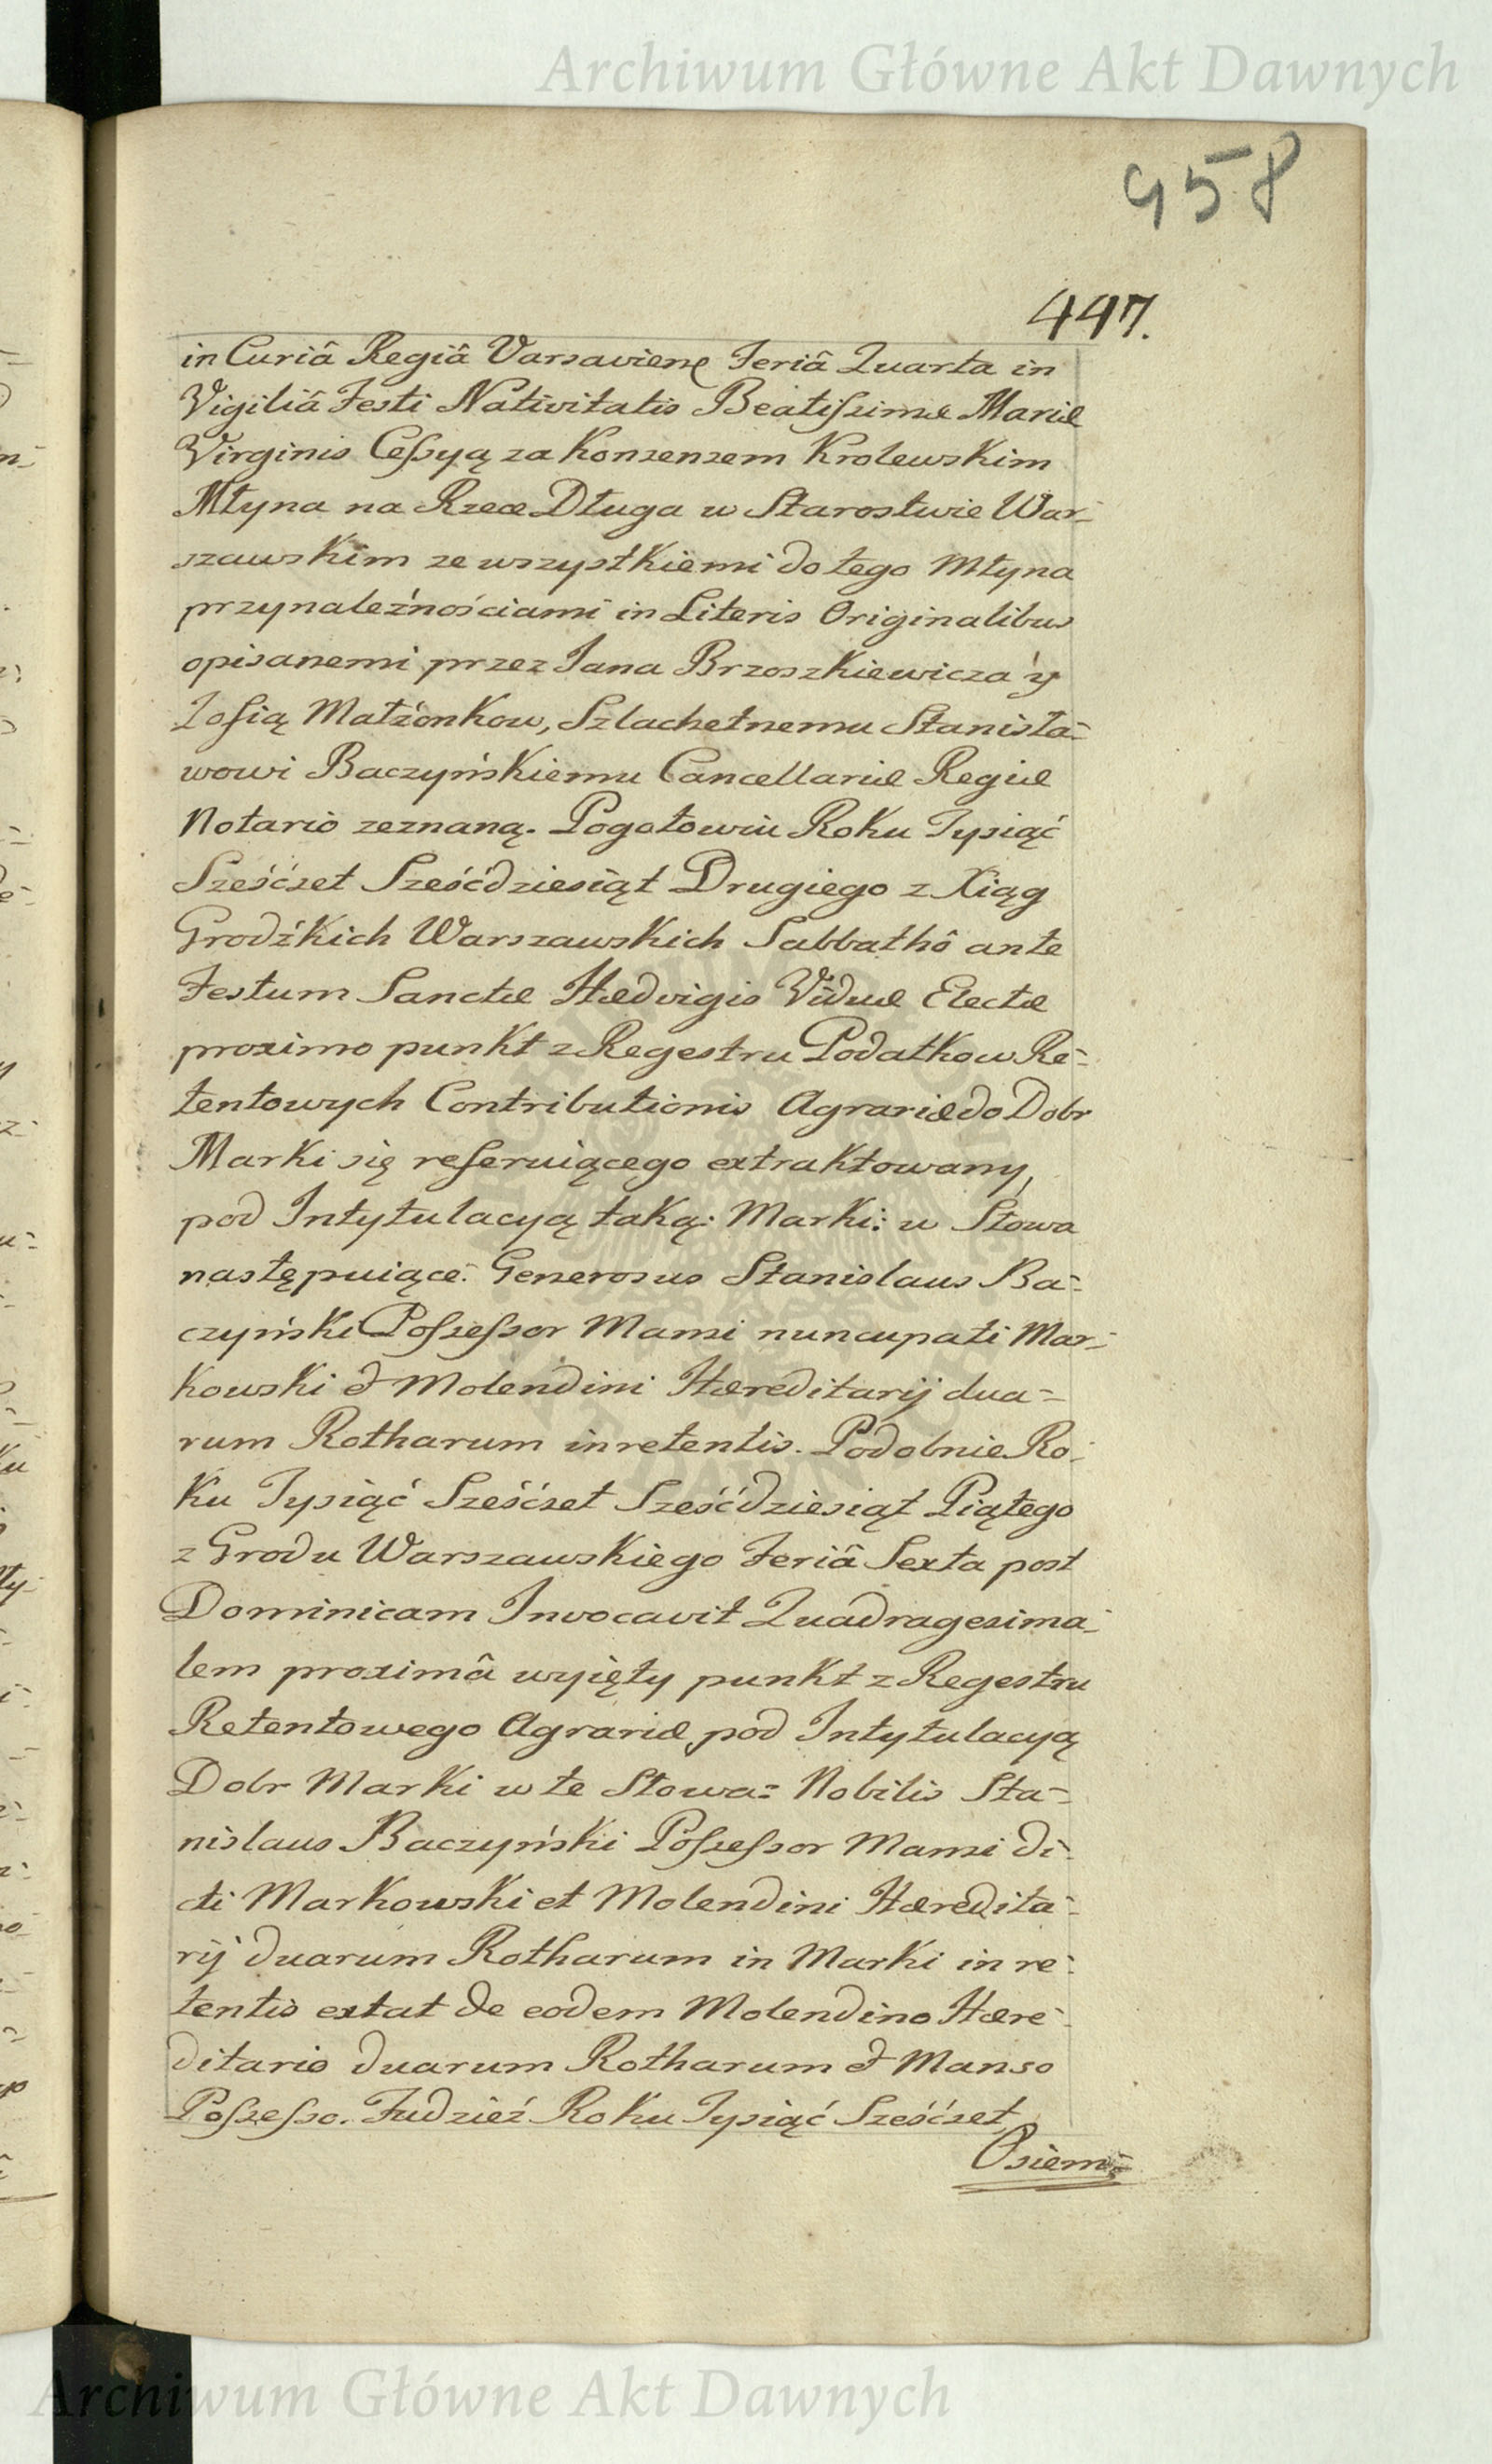 Archiwum Główne Akt Dawnych
958
447.
in Curiâ Regiâ Varsaviens Feriâ Quarta in
Vigiliâ Festi Nativitatis Beatissimæ Mariæ
Virginis Cessyą za Konsensem Krolewskim
Młyna na Rzece Długa w Starostwie War-
szawskim ze wszystkiemi do tego Młyna
przynależnościami in Literis Originalibus
opisanemi przez Jana Brzoszkiewicza y
Zofią Małżonkow, Szlachetnemu Stanisła-
wowi Baczyńskiemu Cancellariæ Regiæ
Notario zeznaną. Pogotowiu Roku Tysiąć
Sześćset Sześćdziesiąt Drugiego z Xiąg
Grodźkich Warszawskich Sabbathô ante
Festum Sanctæ Hædvigis Viduæ Electæ
proximo punkt z Regestru Podatkow Re-
tentowych Contributionis Agrariæ do Dobr
Marki się referuiącego extraktowany,
pod Intytulacyą taką: Marki: w Słowa
następuiące: Generosus Stanislaus Ba-
czyński Possessor Mansi nuncupati Mar-
kowski et Molendini Hæreditarij dua-
rum Rotharum in retentis. Podobnie Ro-
ku Tysiąć Sześćset Sześćdziesiąt Piątego
z Grodu Warszawskiego Feriâ Sexta post
Dominicam Invocavit Quadragesima-
lem proximâ wyięty punkt z Regestru
Retentowego Agrariæ, pod Intytulacyą
Dobr Marki w te Słowa: Nobilis Sta-
nislaus Baczyński Possessor Mansi di-
cti Markowski et Molendini Hæredita-
rij duarum Rotharum in Marki in re-
tentis extat de eodem Molendino Hære-
ditario duarum Rotharum et Manso
Possesso. Tudzież Roku Tysiąć Sześćset
Osiem-
Archiwum Główne Akt Dawnych